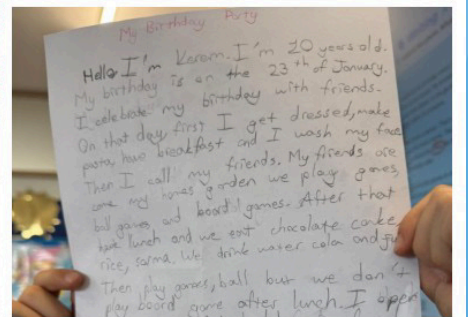 My Birthday Party
Hello I'm Kerem. I'm 10 years old.
My birthday is on the 23th of January.
I celebrate my birthday with friends.
On that day, first I get dressed, make
pasta, have breakfast and I wash my face
Then I call my friends. My friends are
come my homes garden we play games,
ball games, and board games. After that
have lunch and we eat chocolate cake,
rice, sarma. We drink water cola and
Then play games, ball but we don't
play board game after lunch. I open